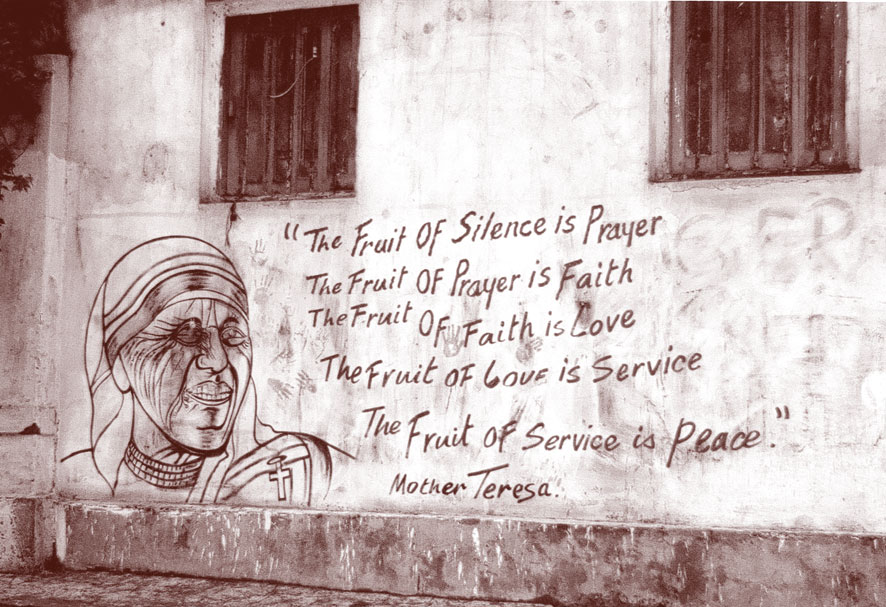 "The Fruit OF Silence is Prayer
The Fruit OF Prayer is Faith
The Fruit OF Faith is Love
The Fruit OF LOVE is Service
The Fruit OF Service is Peace."
Mother Teresa.